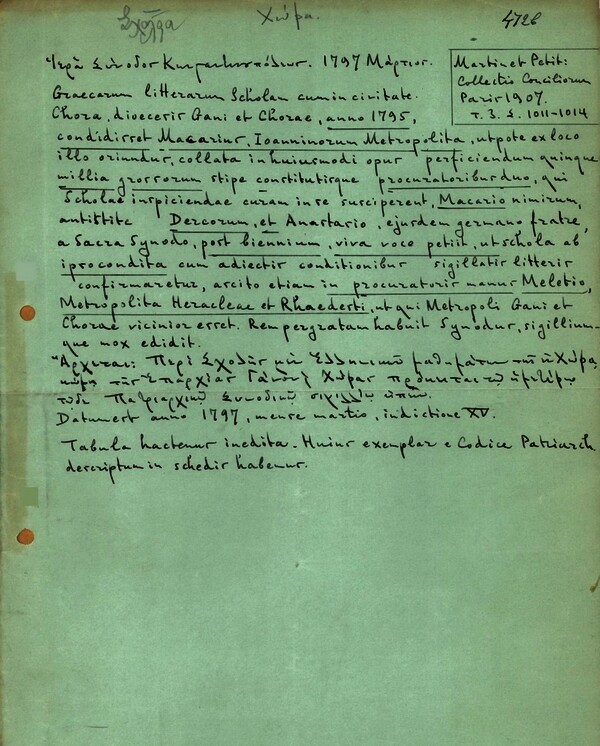 Χώρα.
4728
Ἱερὰ Σύνοδος Κωνσταντινουπόλεως. 1797 Μάρτιος.
Martin et Petit:
Collectio Conciliorum
Paris 1907.
τ. 3. Σ. 1011-1014
Graecarum litterarum Scholam cum in civitate
Chora, dioecesis Gani et Chorae, anno 1795,
condidisset Macarius, Ioanninorum Metropolita, utpote ex loco
illo oriundus, collata in huiusmodi opus perficiendum quinque
millia grossorum stipe constitutisque procuratoribus duo, qui
Scholae inspiciendae curam in se susciperent, Macario nimirum,
antistite Dercorum, et Anastasio, ejusdem germano fratre,
a Sacra Synodo, post biennium, viva voce petiit, ut schola ab
ipso condita cum adiectis conditionibus sigillatis litteris
confirmaretur, ascito etiam in procuratoris munus Meletio,
Metropolita Heracleae et Rhaedesti, ut qui Metropoli Gani et
Chorae vicinior esset. Rem pergratam habuit Synodus, sigillium-
que mox edidit.
Ἄρχεται: Περὶ Σχολῆς τῶν Ἑλληνικῶν μαθημάτων τῆς ἐν Χώρᾳ,
κώμῃ τῆς Ἐπαρχίας Γάνου καὶ Χώρας
τόδε Πατριαρχικὸν Συνοδικὸν
Datum est anno 1797, mense martio, indictione XV.
Tabula hactenus inedita. Huius exemplar e Codice Patriarch.
descriptum in schedis habemus.